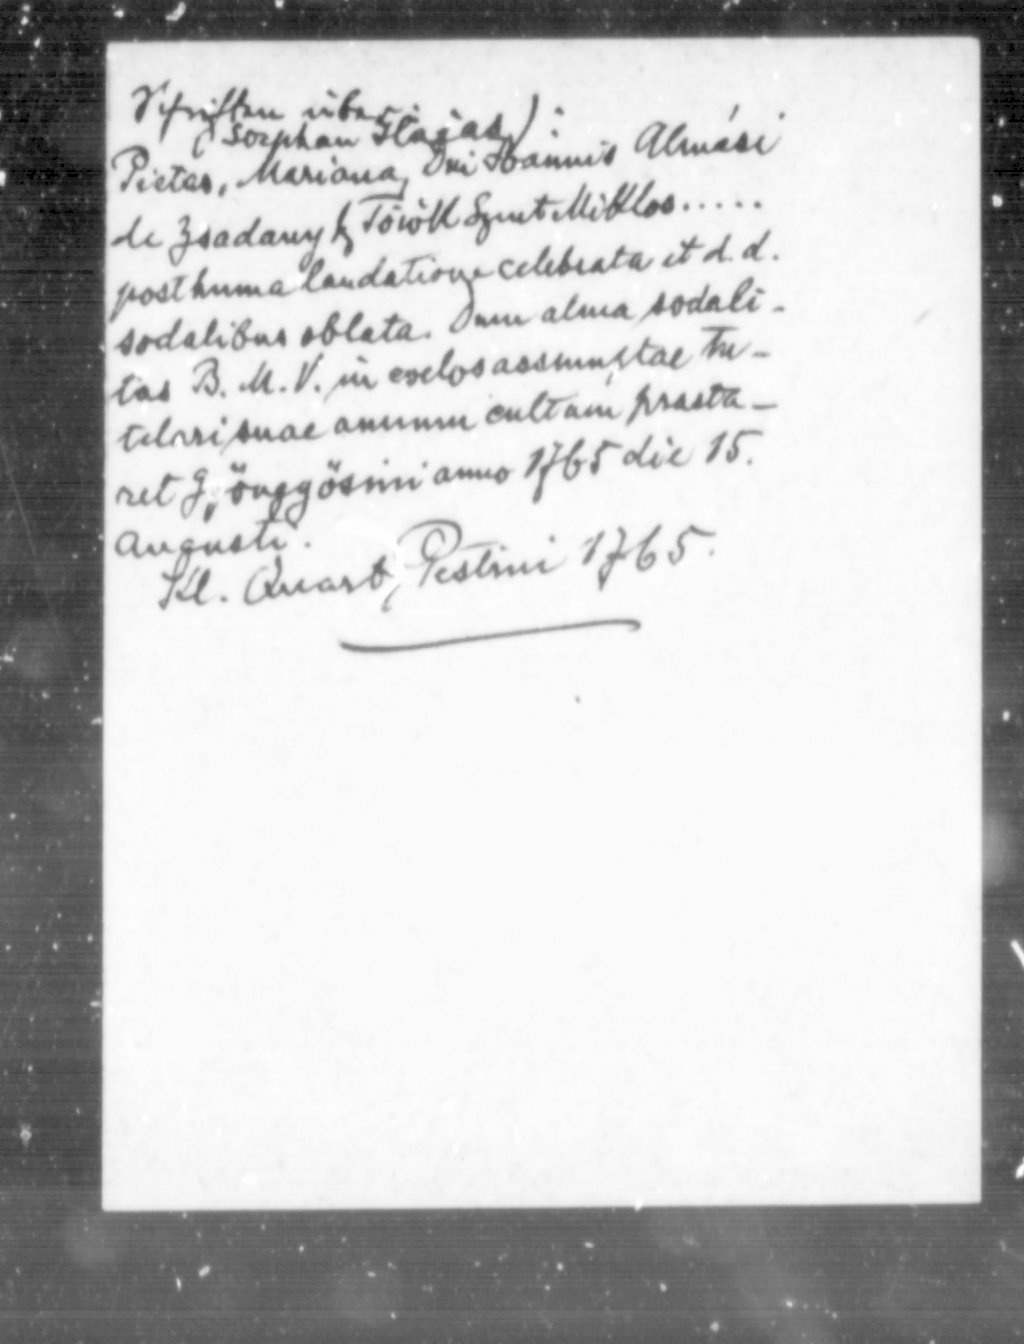 Schriften über
(Sozphan Elaias):
Pietas, Mariana, Dni Joannis Almási
de Zsadany & Török Szent Miklos.....
posthuma laudatione celebrata et d. d.
sodalibus oblata. Dum alma sodali-
tas B. M. V. in coelos assumptae Tu-
telari suae annum cultum praesta-
ret Gyöngyösini anno 1765 die 15.
Augusti.
Kl. Quart, Pestini 1765.